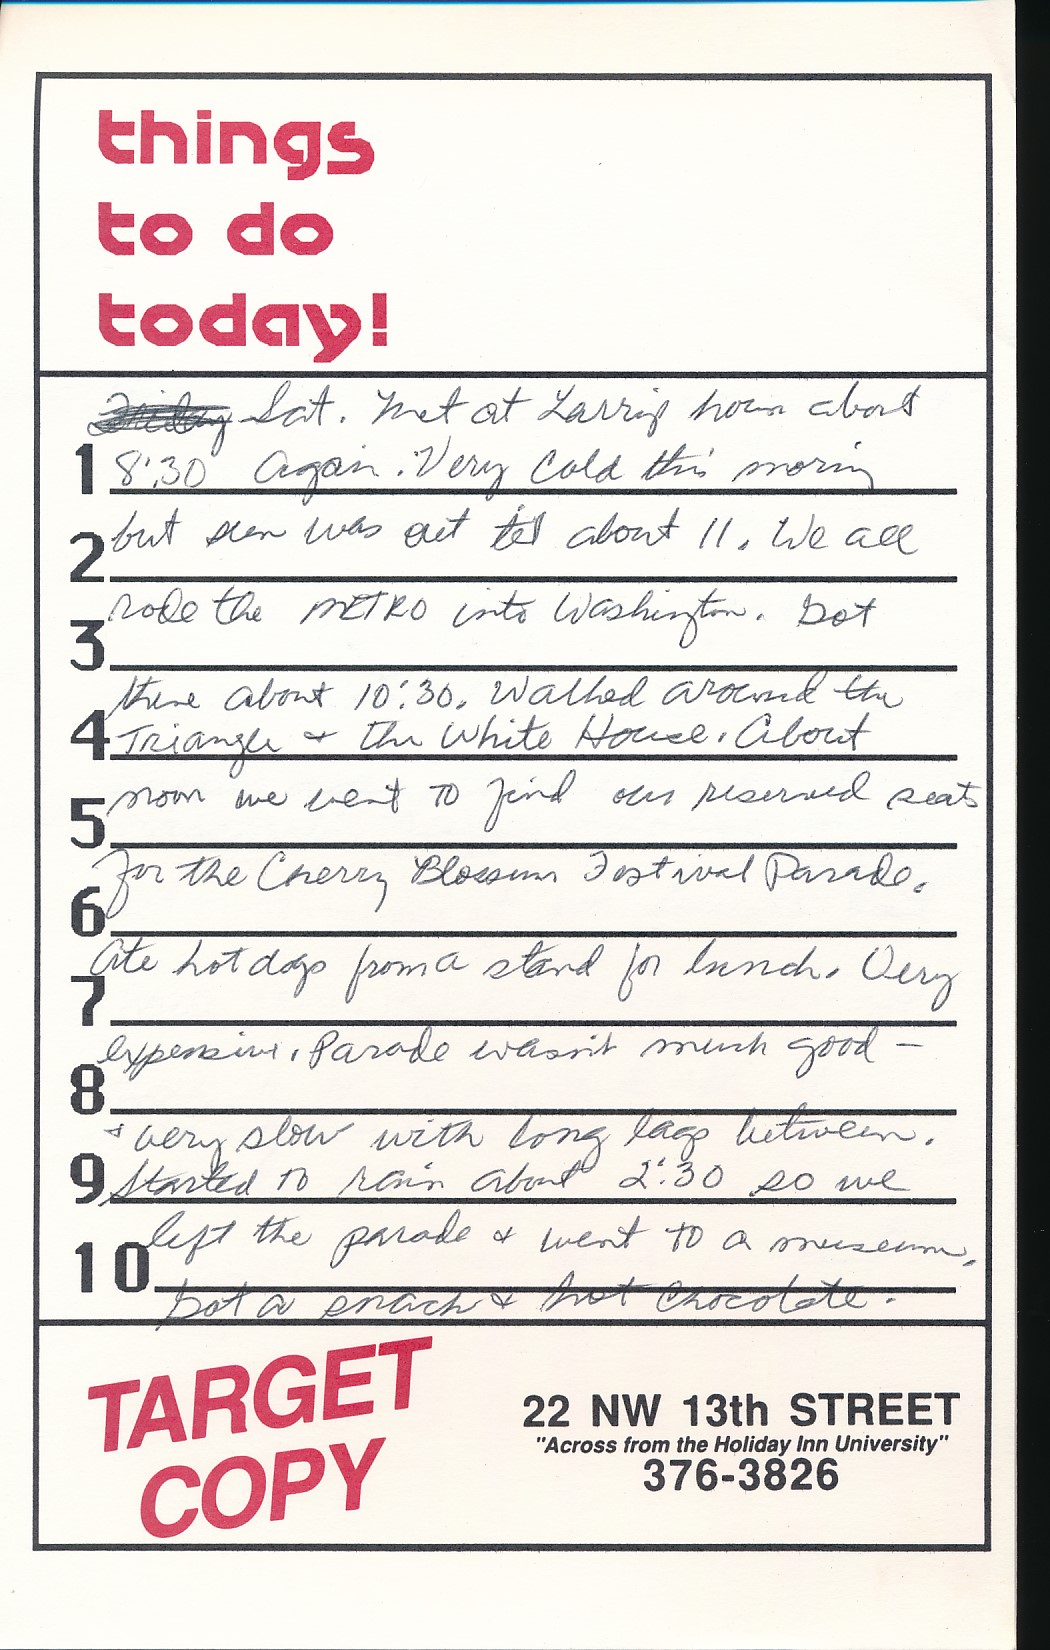 things
to do
today!
Friday Sat. Met at Larrip hom about
1 8:30 Again. Very Cold this morin
2 but sun was out til about 11. We all
3 rode the METRO into Washington. Got
there about 10:30. Walked around the
4 Triangle & the White House. About
5 noon we went to find our reserved seats
6 for the Cherry Blossum Festival Parade.
7 Ate hot dogs from a stand for lunch. Very
8 expensive. Parade wasn't much good -
& very slow with long lags between.
9 Started to rain about 2:30 so we
10 left the parade & went to a museum.
Got a snack & hot Chocolate.
TARGET
COPY
22 NW 13th STREET
"Across from the Holiday Inn University"
376-3826